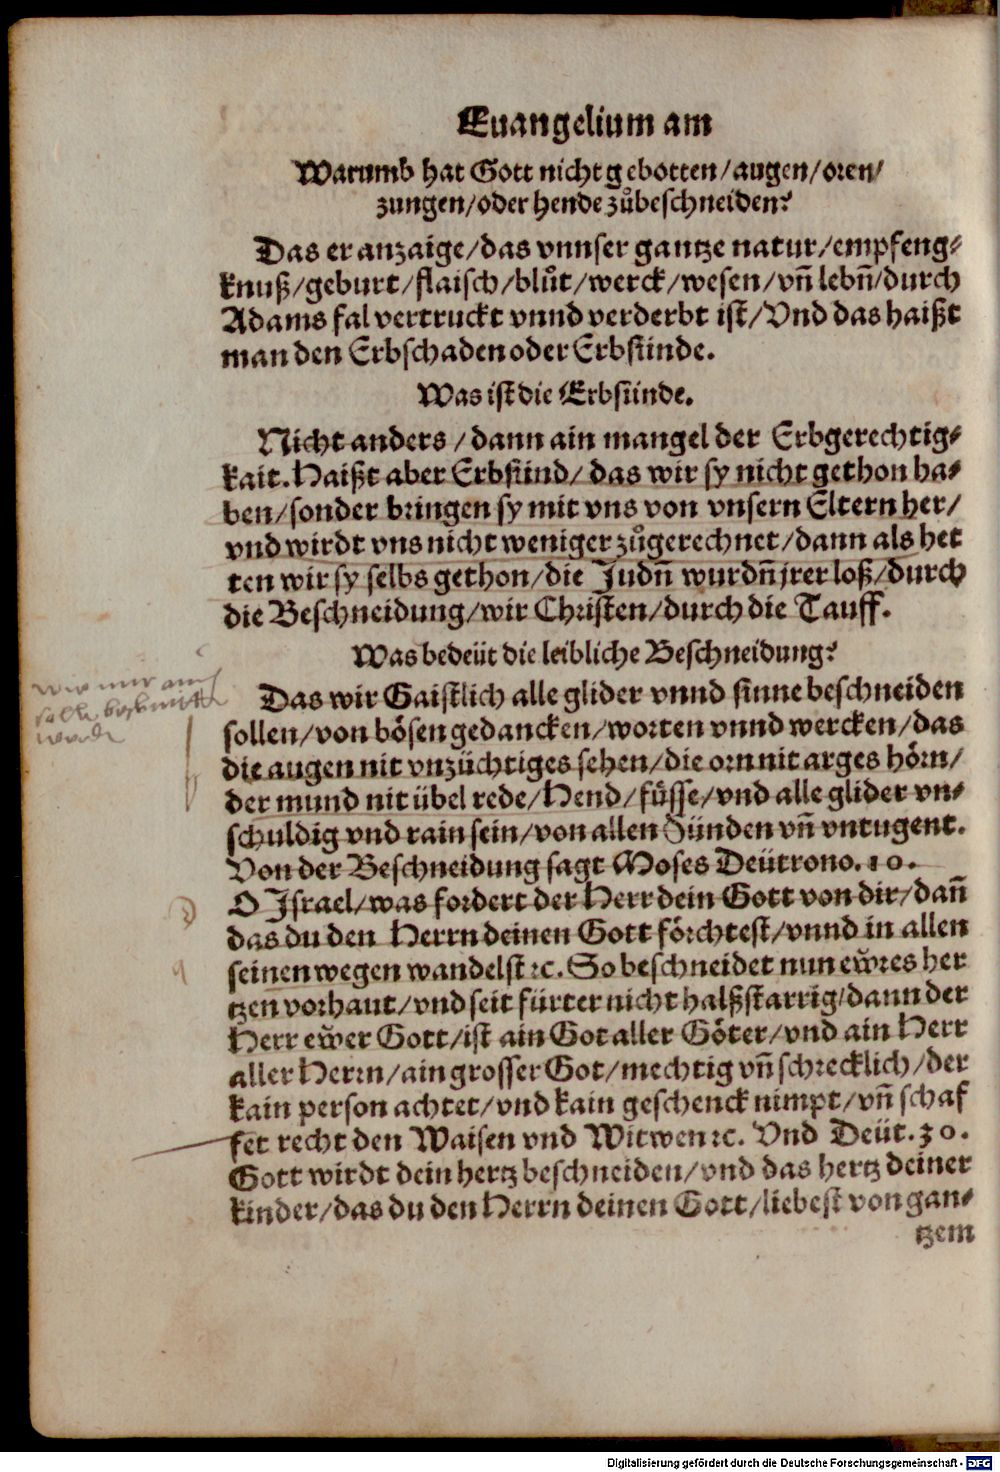 Euangelium am
Warumb hat Gott nicht gebotten/augen/oren/
zungen/oder hende zůbeschneiden?
Das er anzaige/das vnnser gantze natur/empfeng-
knuß/geburt/flaisch/blůt/werck/wesen/vn̄ lebn̄/durch
Adams fal vertruckt vnnd verderbt ist/Vnd das haißt
man den Erbschaden oder Erbsünde.
Was ist die Erbsünde.
Nicht anders/dann ain mangel der Erbgerechtig-
kait. Haißt aber Erbsünd/das wir sy nicht gethon ha-
ben/sonder bringen sy mit vns von vnsern Eltern her/
vnd wirdt vns nicht weniger zůgerechnet/dann als het
ten wir sy selbs gethon/die Judn̄ wurdn̄ jrer loß/durch
die Beschneidung/wir Christen/durch die Tauff.
Was bedeüt die leibliche Beschneidung?
Das wir Gaistlich alle glider vnnd sinne beschneiden
sollen/von bösen gedancken/worten vnnd wercken/das
die augen nit vnzüchtiges sehen/die orn nit arges hörn/
der mund nit übel rede/Hend/füsse/vnd alle glider vn-
schuldig vnd rain sein/von allen Sünden vn̄ vntugent.
Von der Beschneidung sagt Moses Deütrono. 10.
O Israel/was fordert der Herr dein Gott von dir/dan̄
das du den Herrn deinen Gott förchtest/vnnd in allen
seinen wegen wandelst ꝛc. So beschneidet nun ewͤres her
tzen vorhaut/vnd seit fürter nicht halßstarrig/dann der
Herr ewͤer Gott/ist ain Got aller Göter/vnd ain Herr
aller Herrn/ain grosser Got/mechtig vn̄ schrecklich/der
kain person achtet/vnd kain geschenck nimpt/vn̄ schaf
fet recht den Waisen vnd Witwen ꝛc. Vnd Deüt. 30.
Gott wirdt dein hertz beschneiden/vnd das hertz deiner
kinder/das du den Herrn deinen Gott/liebest von gan-
tzem
Digitalisierung gefördert durch die Deutsche Forschungsgemeinschaft - DFG